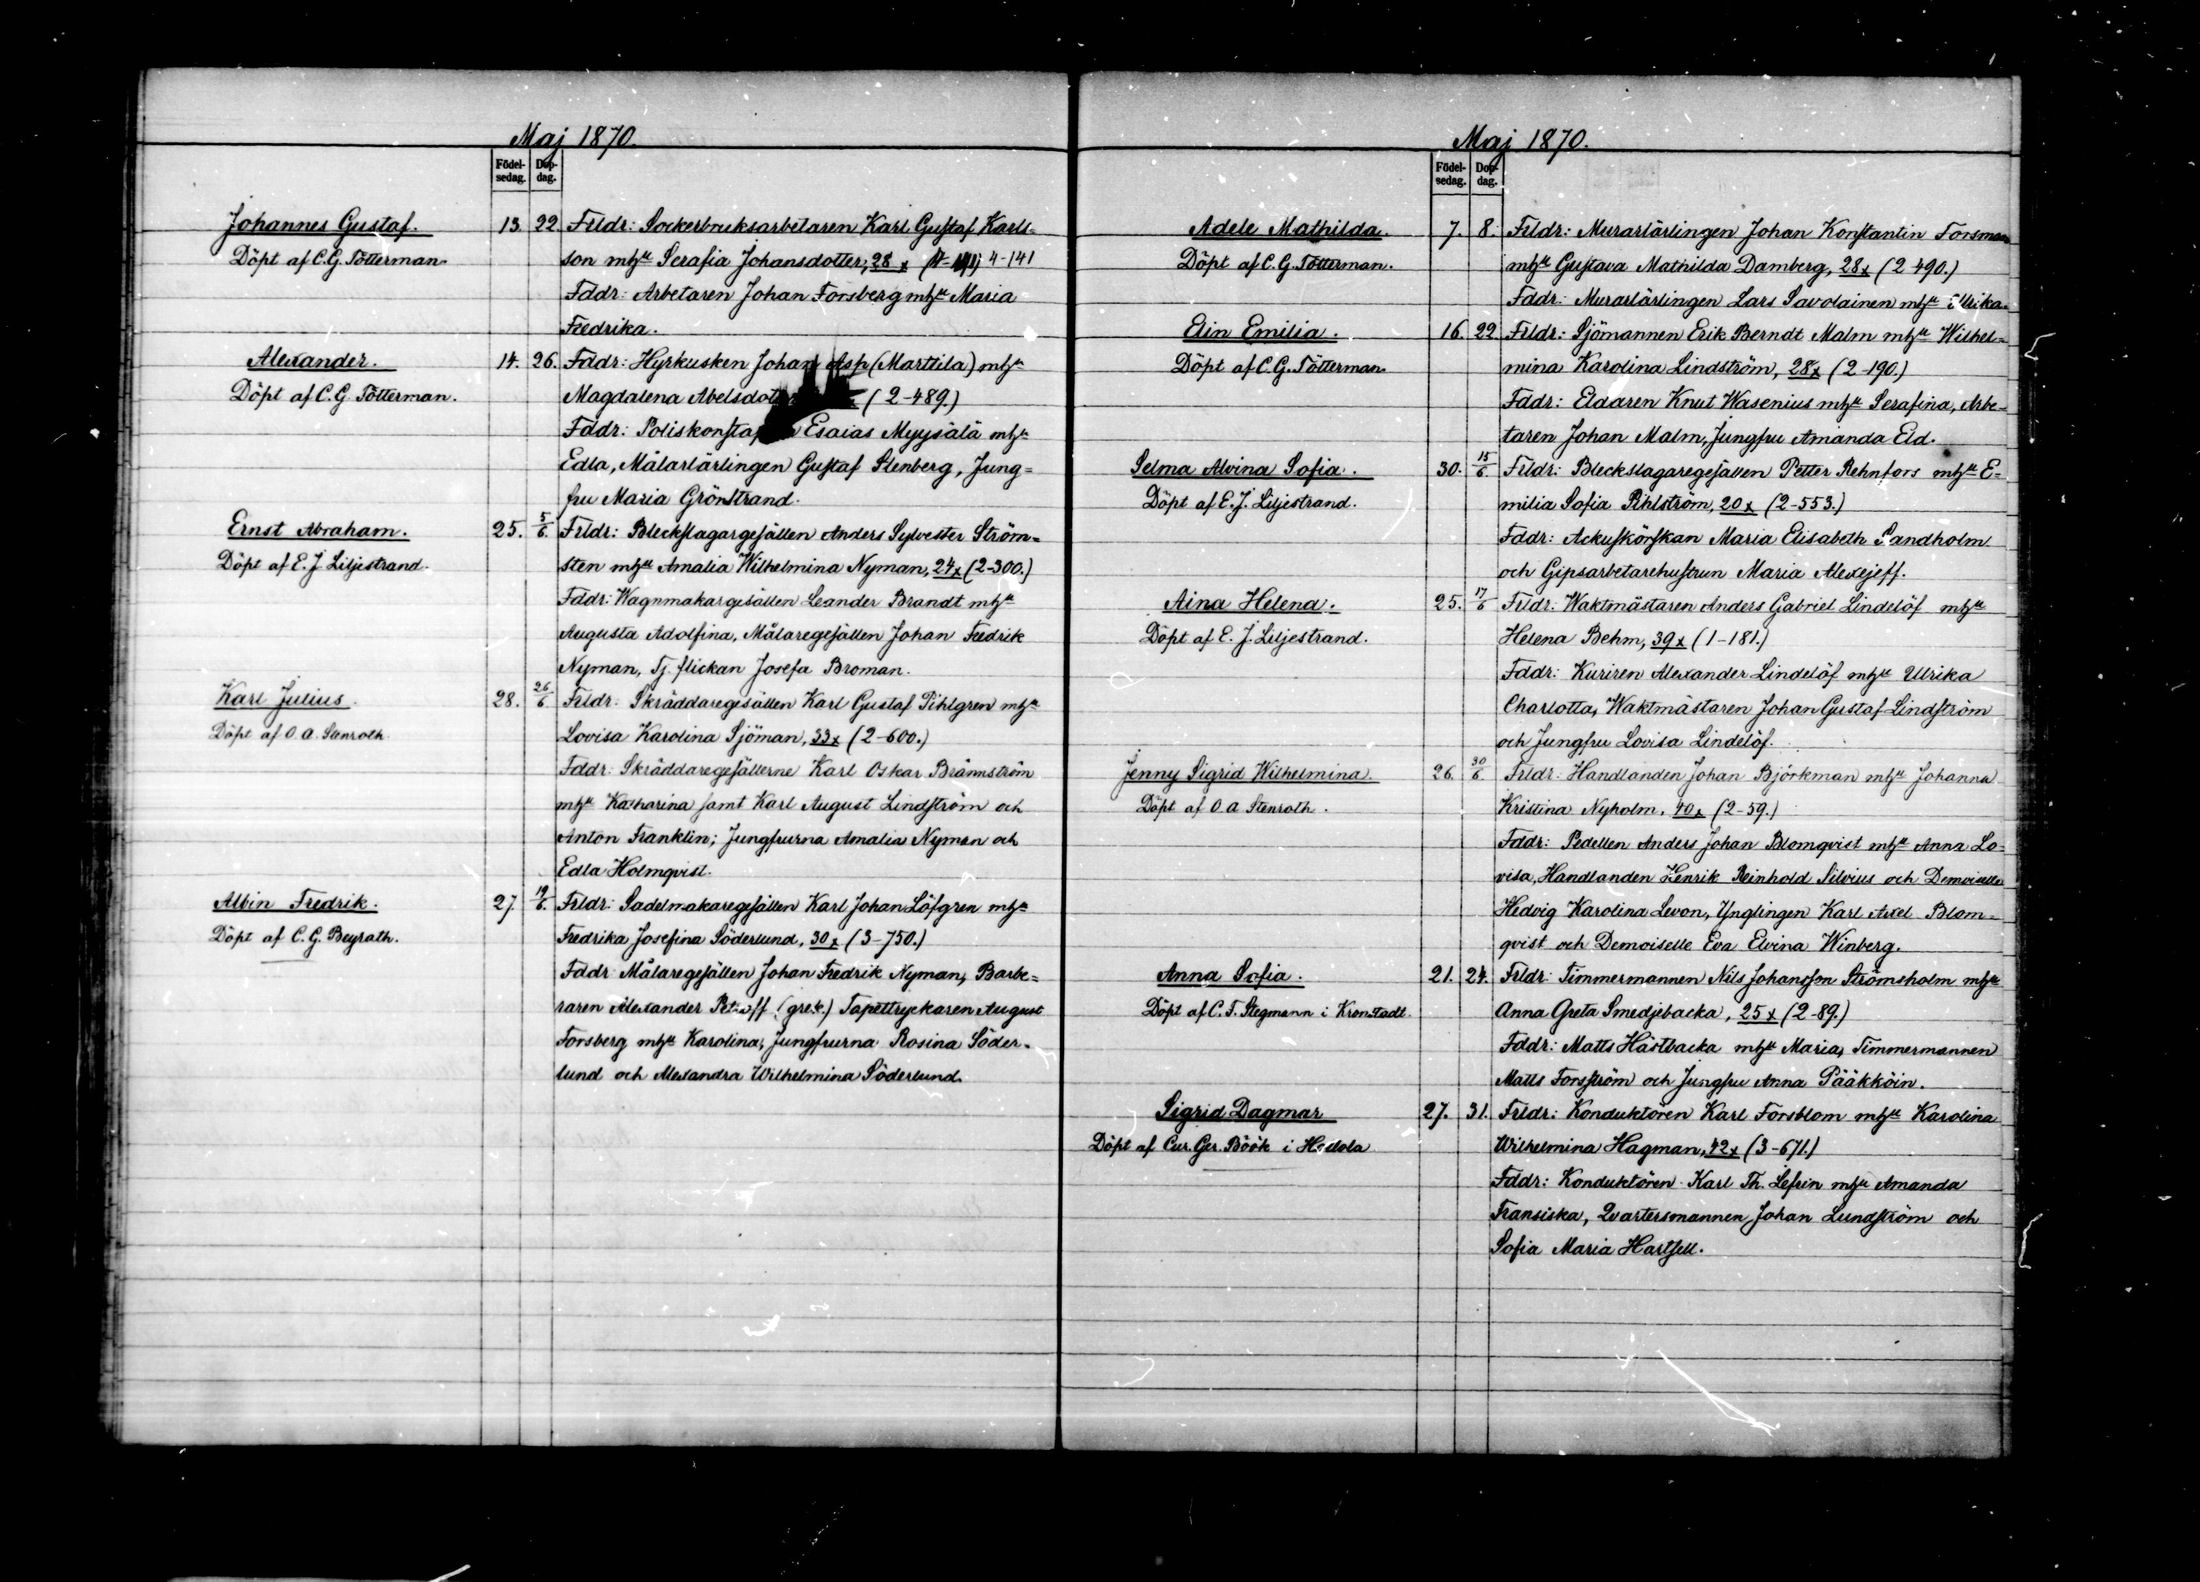 Maj 1870.
Födel-
sedag.
Dop-
dag.
Johannes Gustaf.
Döpt af C. G. Tötterman.
13. 22. Frldr: Sockerbruksarbetaren Karl Gustaf Karls-
son mhu Serafia Johansdotter, 28 x 4-141
Fddr: Arbetaren Johan Forsberg mhu Maria
Fredrika.
Alexander.
Döpt af C. G. Tötterman.
14. 26. Fddr: Hyrkusken Johan Asp (Marttila) mhu
Magdalena Abelsdot (2-489.)
Fddr: Poliskonsta Esaias Myysälä mhu
Edla, Målarlärlingen Gustaf Stenberg, Jung=
fru Maria Grönstrand.
Ernst Abraham.
Döpt af E. J. Liljestrand.
25. 5/6. Frldr: Bleckslagargesällen Anders Sylvester Ström=
sten mhu Amalia Wilhelmina Nyman, 24x (2-300.)
Fddr: Wagnmakargesällen Leander Brandt mhu
Augusta Adolfina, Målaregesällen Johan Fredrik
Nyman, Tj. flickan Josefa Broman.
Karl Julius.
Döpt af O. A. Stenroth.
28. 26/6 Frldr: Skräddaregesällen Karl Gustaf Pihlgren mhu
Lovisa Karolina Sjöman, 33x (2-600.)
Fddr: Skräddaregesällerne Karl Oskar Brännström
mhu Katharina samt Karl August Lindström och
Anton Franklin; Jungfrurna Amalia Nyman och
Edla Holmqvist.
Albin Fredrik.
Döpt af C. G. Beyrath.
27. 19/6. Frldr: Sadelmakaregesällen Karl Johan Löfgren mhu
Fredrika Josefina Söderlund, 30x (3-750.)
Fddr: Målaregesällen Johan Fredrik Nyman, Barbe=
raren Alexander Petroff (grek.) Tapettryckaren August
Forsberg mhu Karolina, Jungfrurna Rosina Söder=
lund och Alexandra Wilhelmina Söderlund.
Maj 1870.
Födel-
sedag.
Dop-
dag.
Adele Mathilda.
Döpt af C. G. Tötterman.
7. 8. Frldr: Murarlärlingen Johan Konstantin Forsman
mhu Gustava Mathilda Damberg, 28x (2-490.)
Fddr: Murarlärlingen Lars Savolainen mhu Ulrika.
Elin Emilia.
Döpt af C. G. Tötterman.
16. 22. Frldr: Sjömannen Erik Berndt Malm mhu Wilhel=
mina Karolina Lindström, 28x (2-190.)
Fddr: Eldaren Knut Wasenius mhu Serafina, Arbe-
taren Johan Malm, Jungfru Amanda Eld.
Selma Alvina Sofia.
Döpt af E. J. Liljestrand.
30. 15/6. Frldr: Bleckslagaregesällen Petter Rehnfors mhu E=
milia Sofia Pihlström, 20x (2-553.)
Fddr: Ackuskörskan Maria Elisabeth Sandholm
och Gipsarbetarehustrun Maria Alexejeff.
Aina Helena.
Döpt af E. J. Liljestrand.
25. 17/6 Frldr: Waktmästaren Anders Gabriel Lindelöf mhu
Helena Behm, 39x (1-181.)
Fddr: Kuriren Alexander Lindelöf mhu Ulrika
Charlotta, Waktmästaren Johan Gustaf Lindström
och Jungfru Lovisa Lindelöf.
Jenny Sigrid Wilhelmina.
Döpt af O. A. Stenroth.
26. 30/6. Frldr: Handlanden Johan Björkman mhu Johanna
Kristina Nyholm, 40x (2-59.)
Fddr: Pedellen Anders Johan Blomqvist mhu Anna Lo=
visa, Handlanden Henrik Reinhold Silvius och Demoiselle
Hedvig Karolina Levon, Ynglingen Karl Axel Blom=
qvist och Demoiselle Eva Elvina Winberg.
Anna Sofia.
Döpt af C. F. Stegmann i Kronstadt.
21. 24. Frldr: Timmermannen Nils Johansson Strömsholm mhu
Anna Greta Smedjebacka, 25x (2-89.)
Fddr: Matts Hästbacka mhu Maria, Timmermannen
Matts Forsström och Jungfru Anna Pääkköin.
Sigrid Dagmar
Döpt af Cur. Ger. Böök i Hodola
27. 31. Frldr: Konduktören Karl Forsblom mhu Karolina
Wilhelmina Hagman, 42x (3-671.)
Fddr: Konduktören Karl Th. Lefrin mhu Amanda
Fransiska, Qvartersmannen Johan Lundström och
Sofia Maria Hartsell.